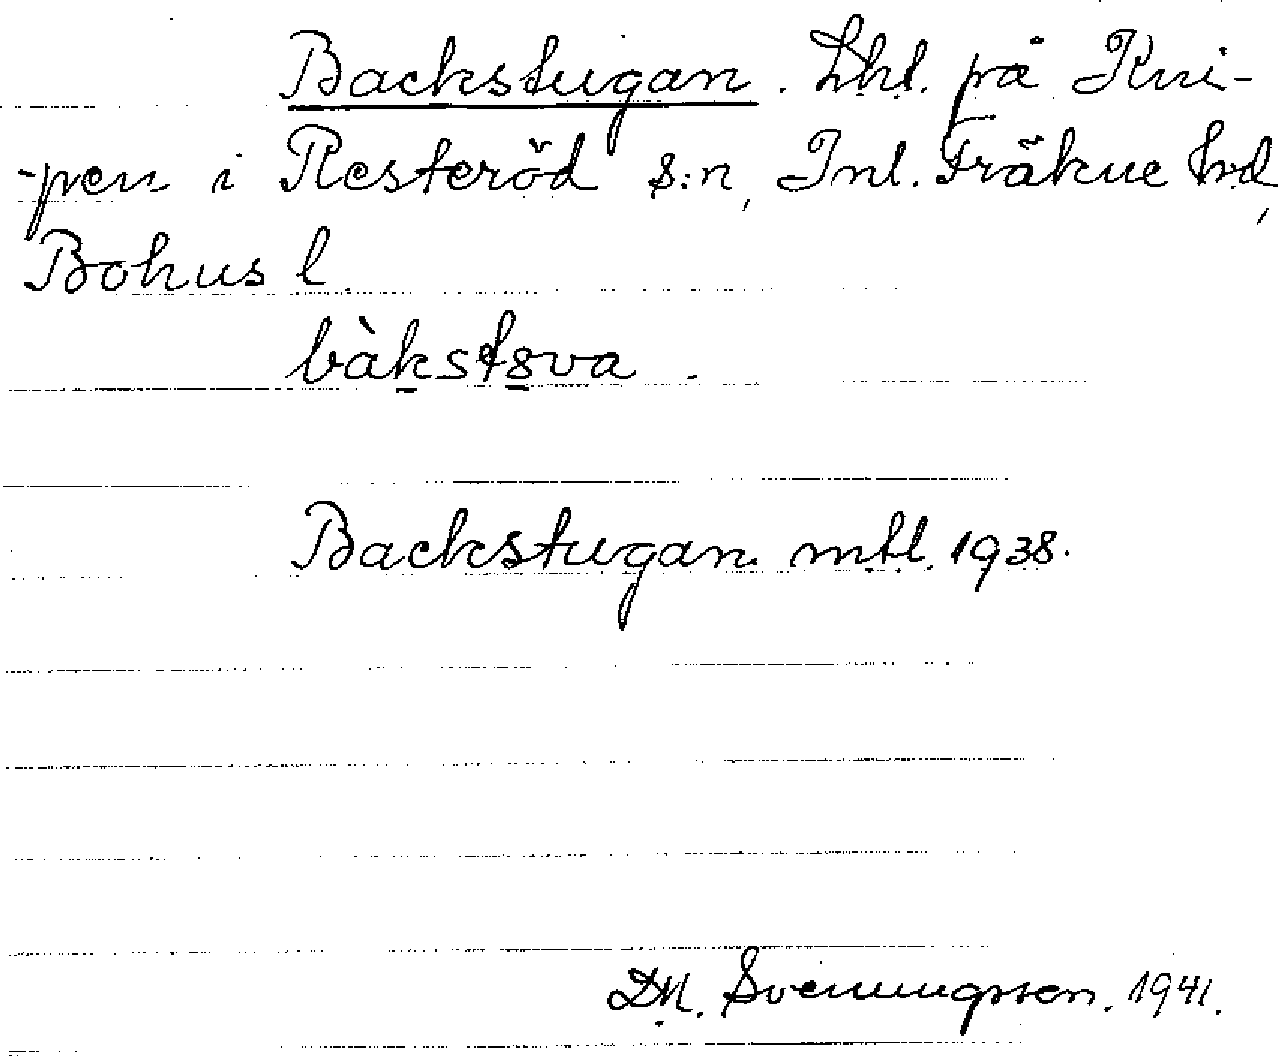 Backstugan. Lht. på Kni-
-pen i Resteröd s:n, Inl. Fräkne hd,
Bohus l.
bàkstsva.
Backstugan mtl. 1938.
D.M. Svenningsson. 1941.